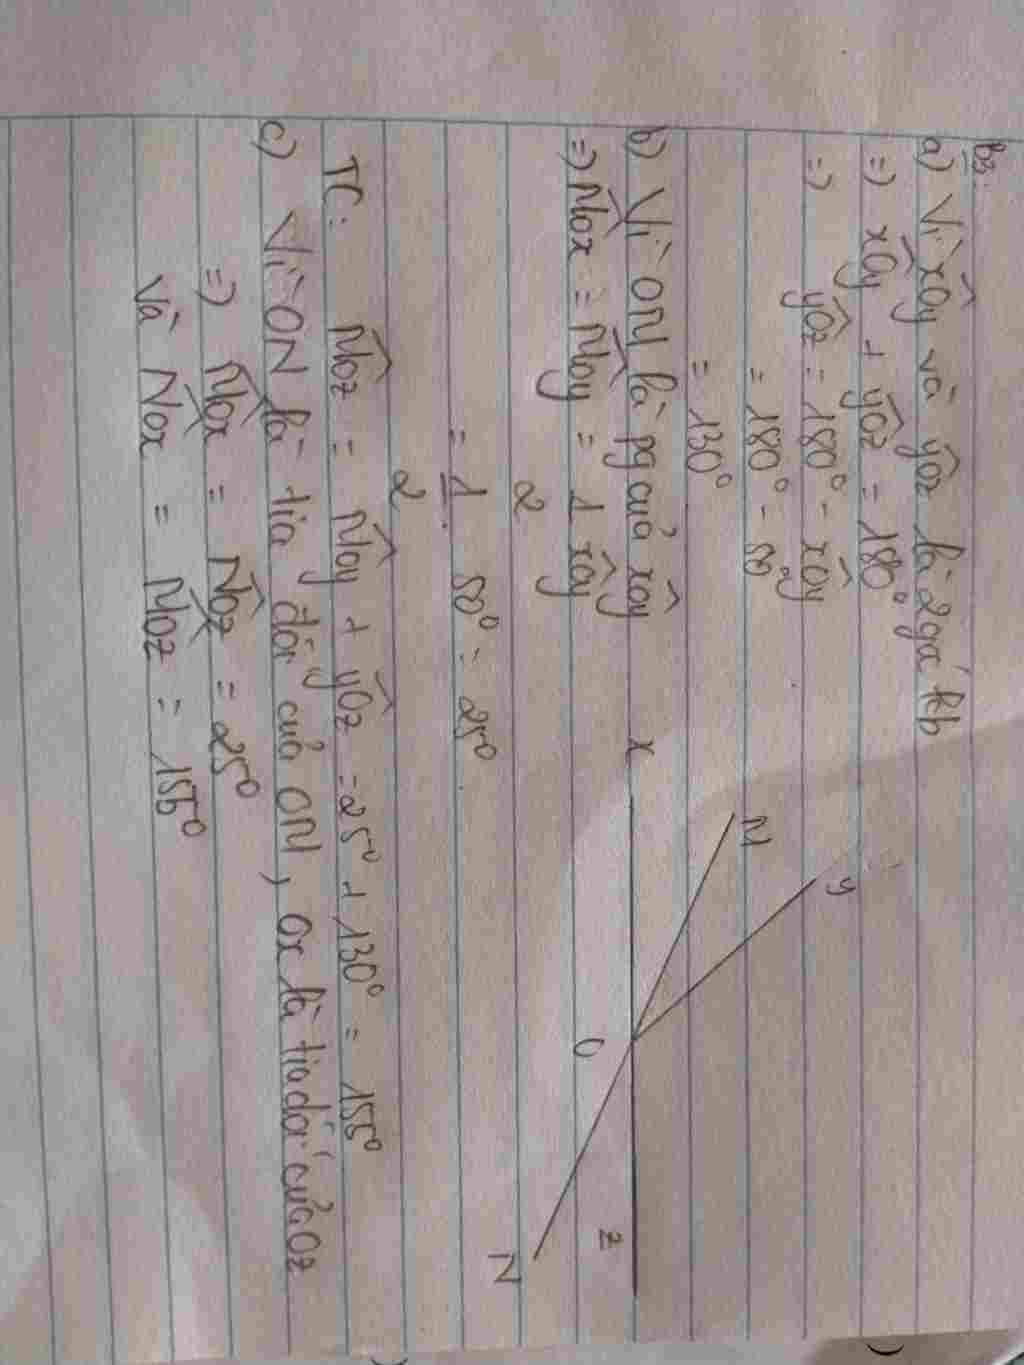 b3:
a) Vì xÔy và yÔz là 2 gá kb
=) xÔy + yÔz = 180°
=) yÔz = 180° - xÔy
= 180° - 50°
= 130°
b) Vì OM là pg của xÔy
=) MÔx = MÔy = 1 xÔy
2
= 1 50° = 25°
2
TC: MÔz = MÔy + yÔz = 25° + 130° = 155°
c) Vì ON là tia đối của OM, Ox là tia đối của Oz
=) MÔx = NÔz = 25°
và NÔx = MÔz = 155°
x
M
y
O
z
N